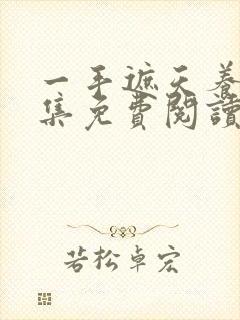 一手遮天养
集免費閱讀
若松卓宏